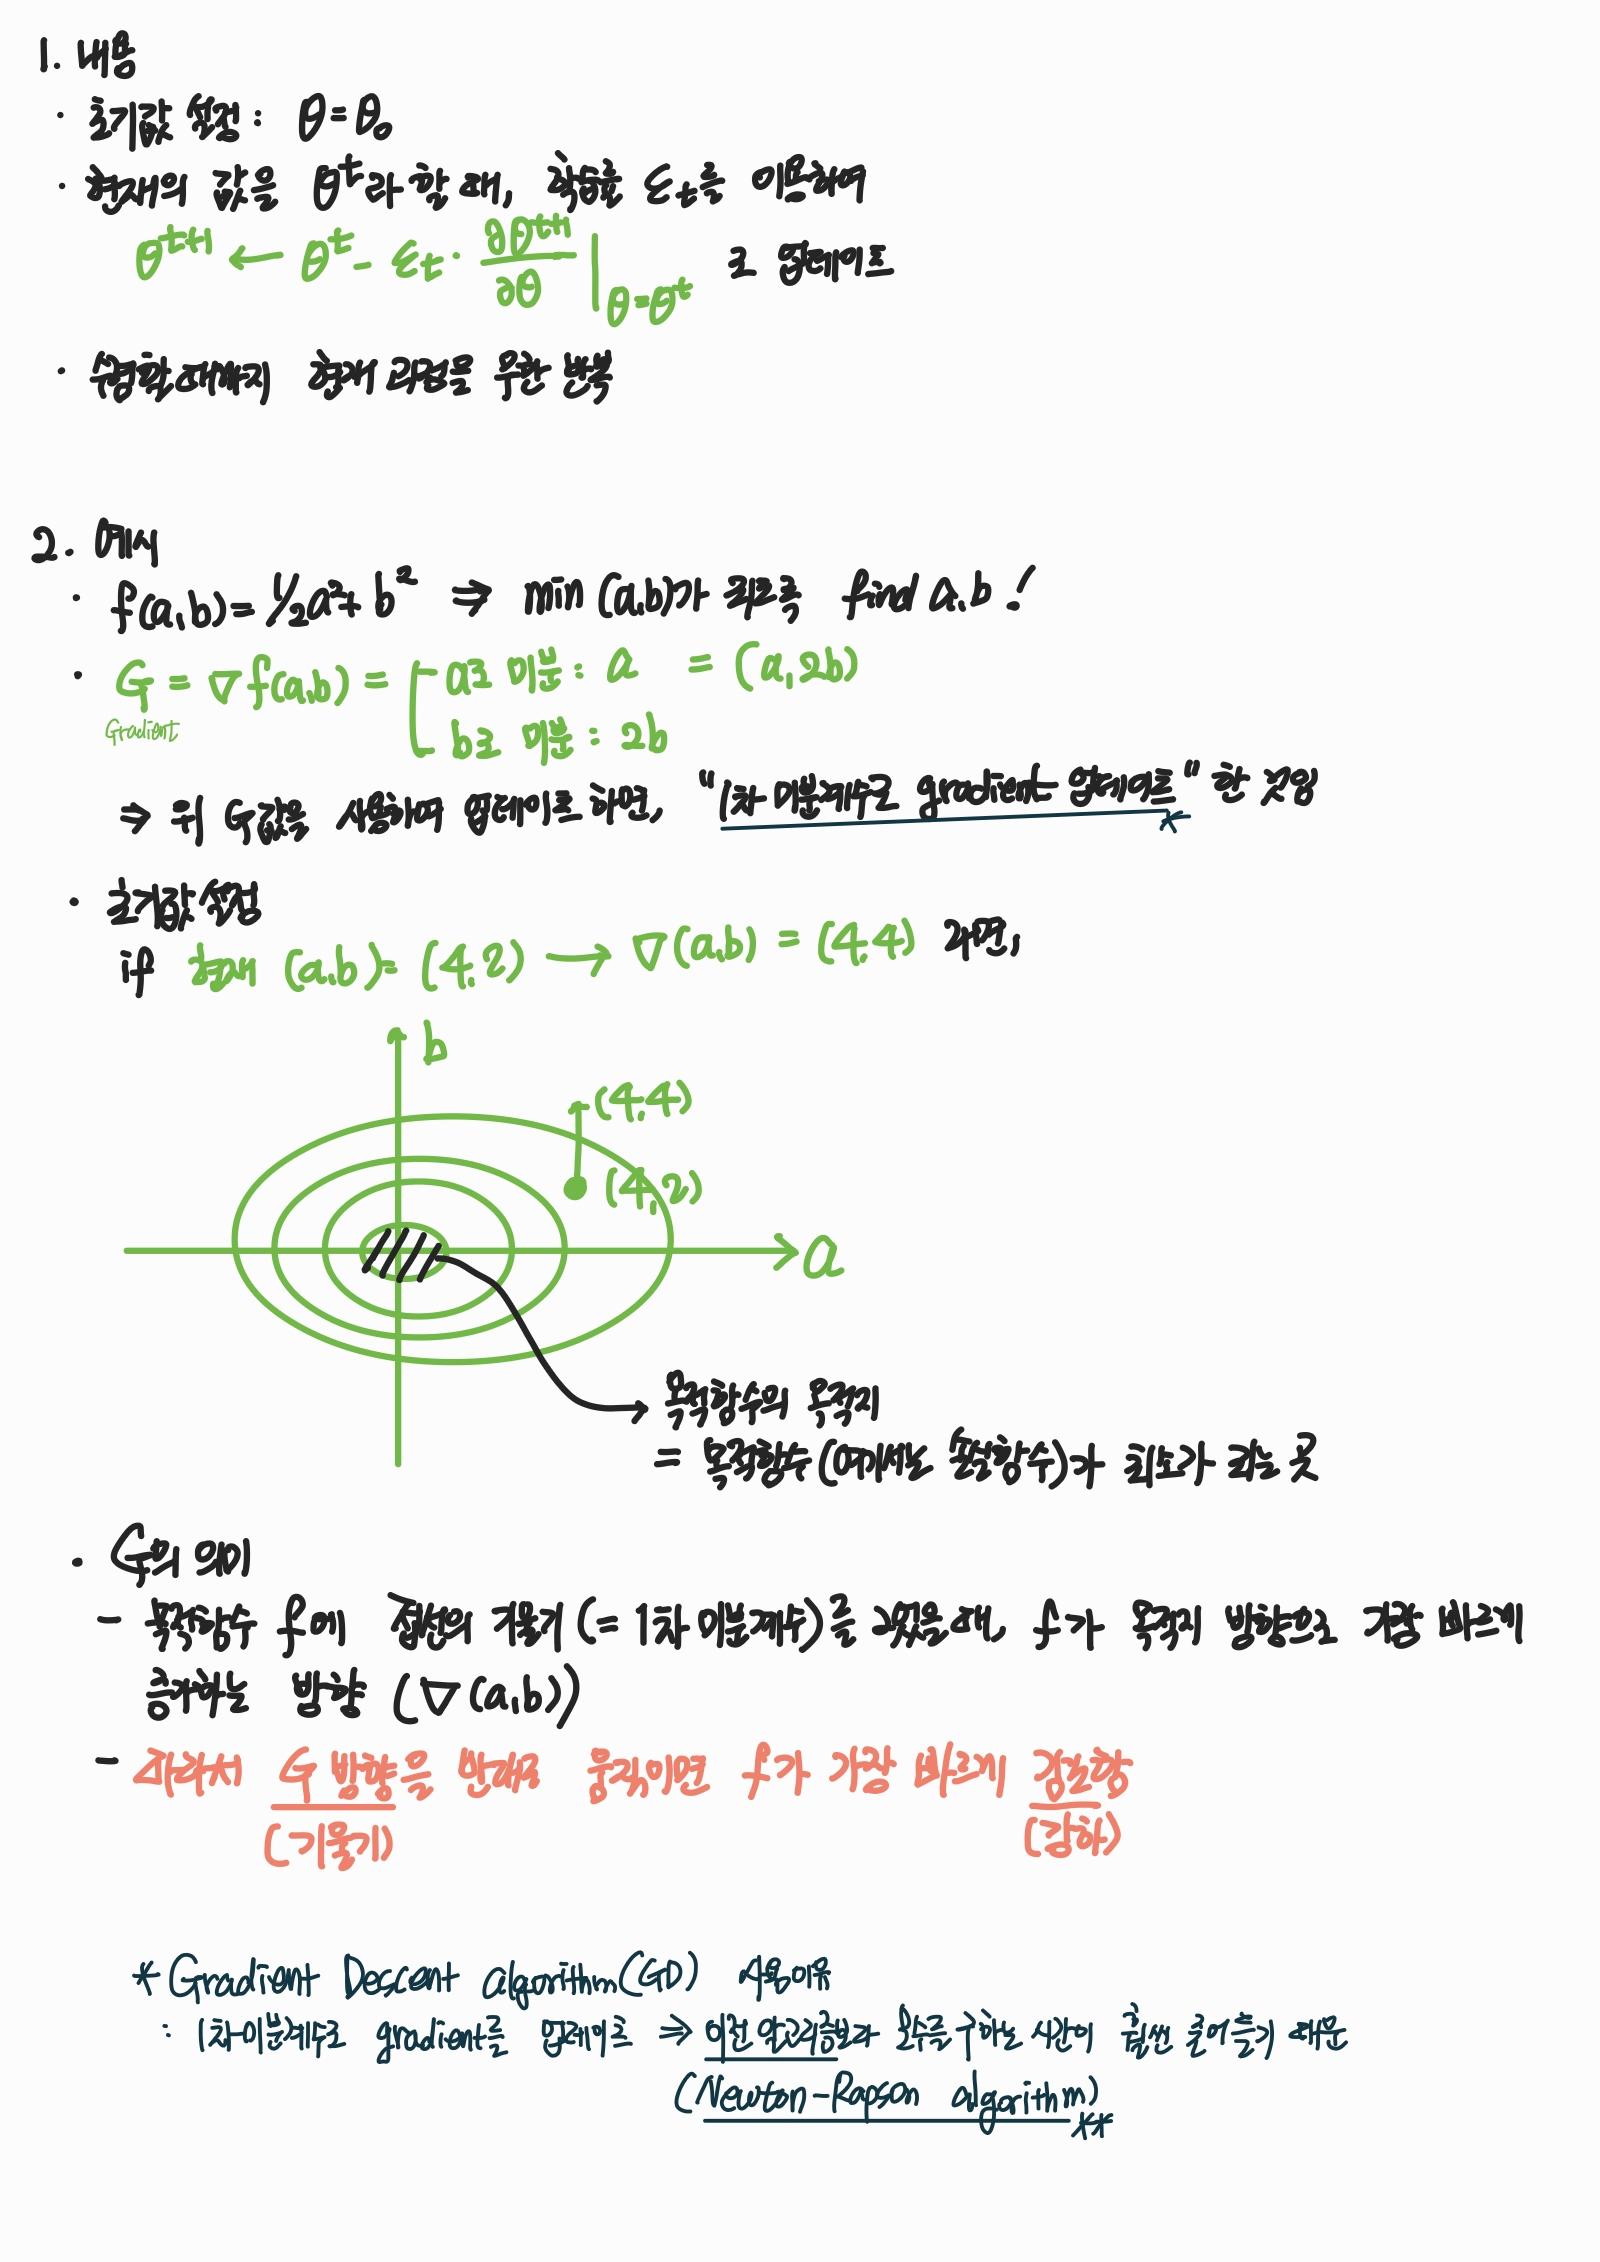 1. 내용
· 초기값 설정 : θ = θ₀
· 현재의 값을 θᵗ라 할 때, 학습률 εₜ를 이용하여
θᵗ⁺¹ ← θᵗ - εₜ · ∂θᵗ⁺¹/∂θ |θ=θᵗ 로 업데이트
· 수렴할 때까지 현재 과정을 무한 반복
2. 예시
· f(a,b) = 1/2a² + b² ⇒ min (a,b)가 되도록 find a,b !
· G = ∇f(a,b) = a로 미분 : a = (a, 2b)
Gradient
b로 미분 : 2b
⇒ 위 G값을 사용하여 업데이트 하면, "1차 미분계수로 gradient 업데이트" 한 것임
*
· 초기값 설정
if 현재 (a,b) = (4,2) → ∇(a,b) = (4,4) 라면,
b
(4,4)
(4,2)
a
목적함수의 목적지
= 목적함수 (여기서는 손실함수)가 최소가 되는 곳
· G의 의미
- 목적함수 f에 접선의 기울기 (= 1차 미분계수)를 그었을 때, f가 목적지 방향으로 가장 빠르게
증가하는 방향 (∇(a,b))
- 따라서 G 방향을 반대로 움직이면 f가 가장 빠르게 감소함
(기울기) (강하)
* Gradient Descent algorithm(GD) 사용이유
: 1차미분계수로 gradient를 업데이트 ⇒ 이전 알고리즘보다 모수를 구하는 시간이 훨씬 줄어들기 때문
(Newton-Rapson algorithm)
**